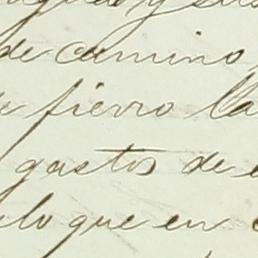 y su
de camino
fierro la
gastos de
lo que en